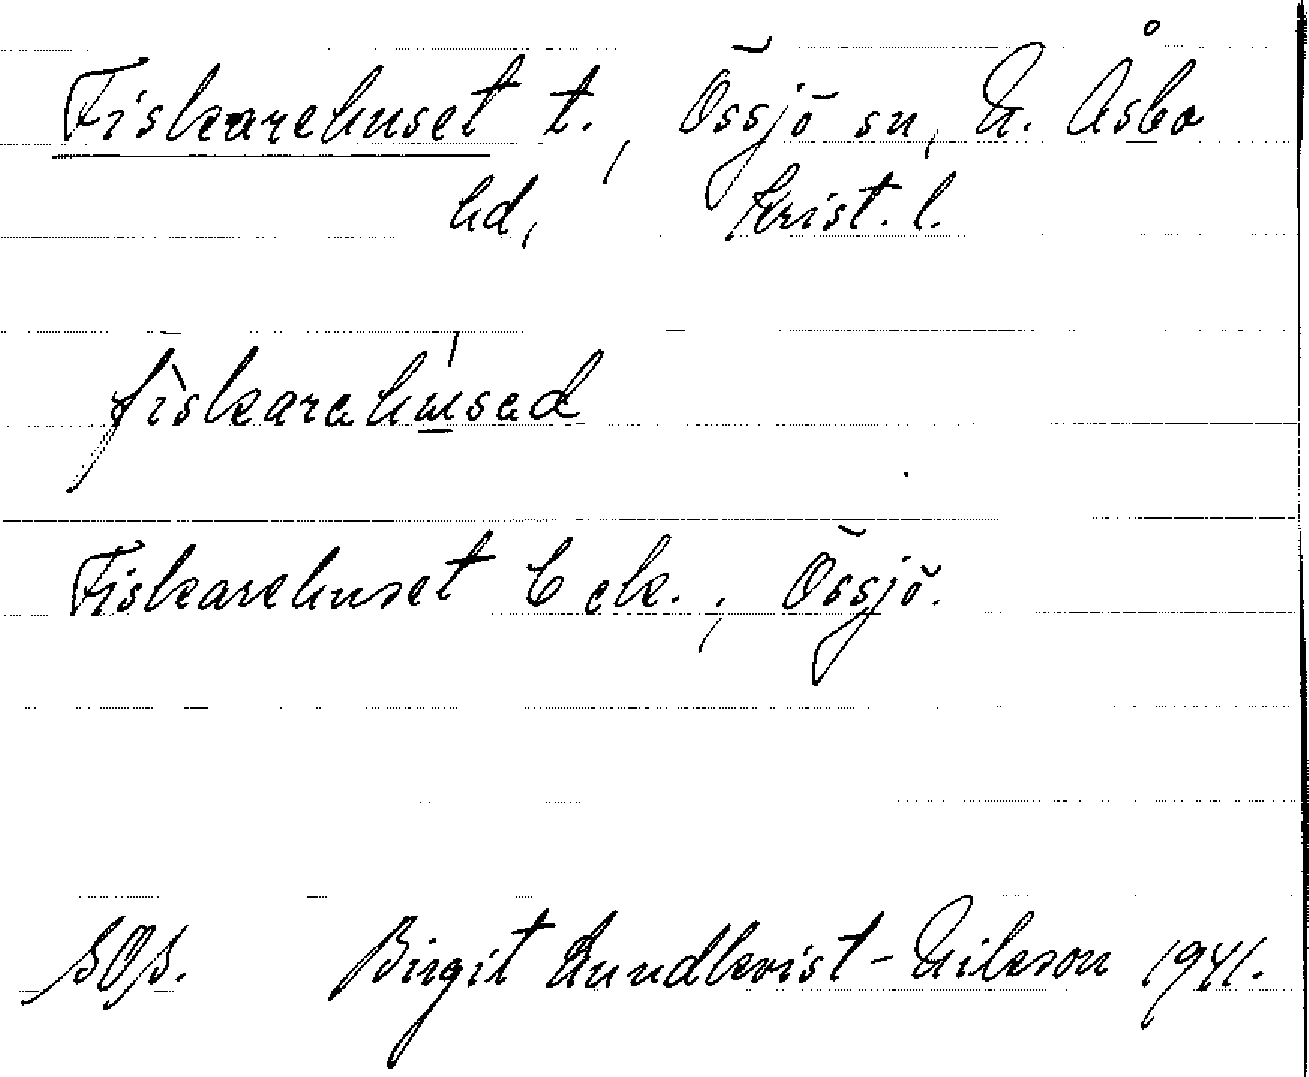 Fiskarehuset t., Össjö sn, N. Åsbo
hd, Krist. l.
fiskarahusad
Fiskarehuset C ek., Össjö.
SOS. Birgit Lundkvist-Nilsson 1941.